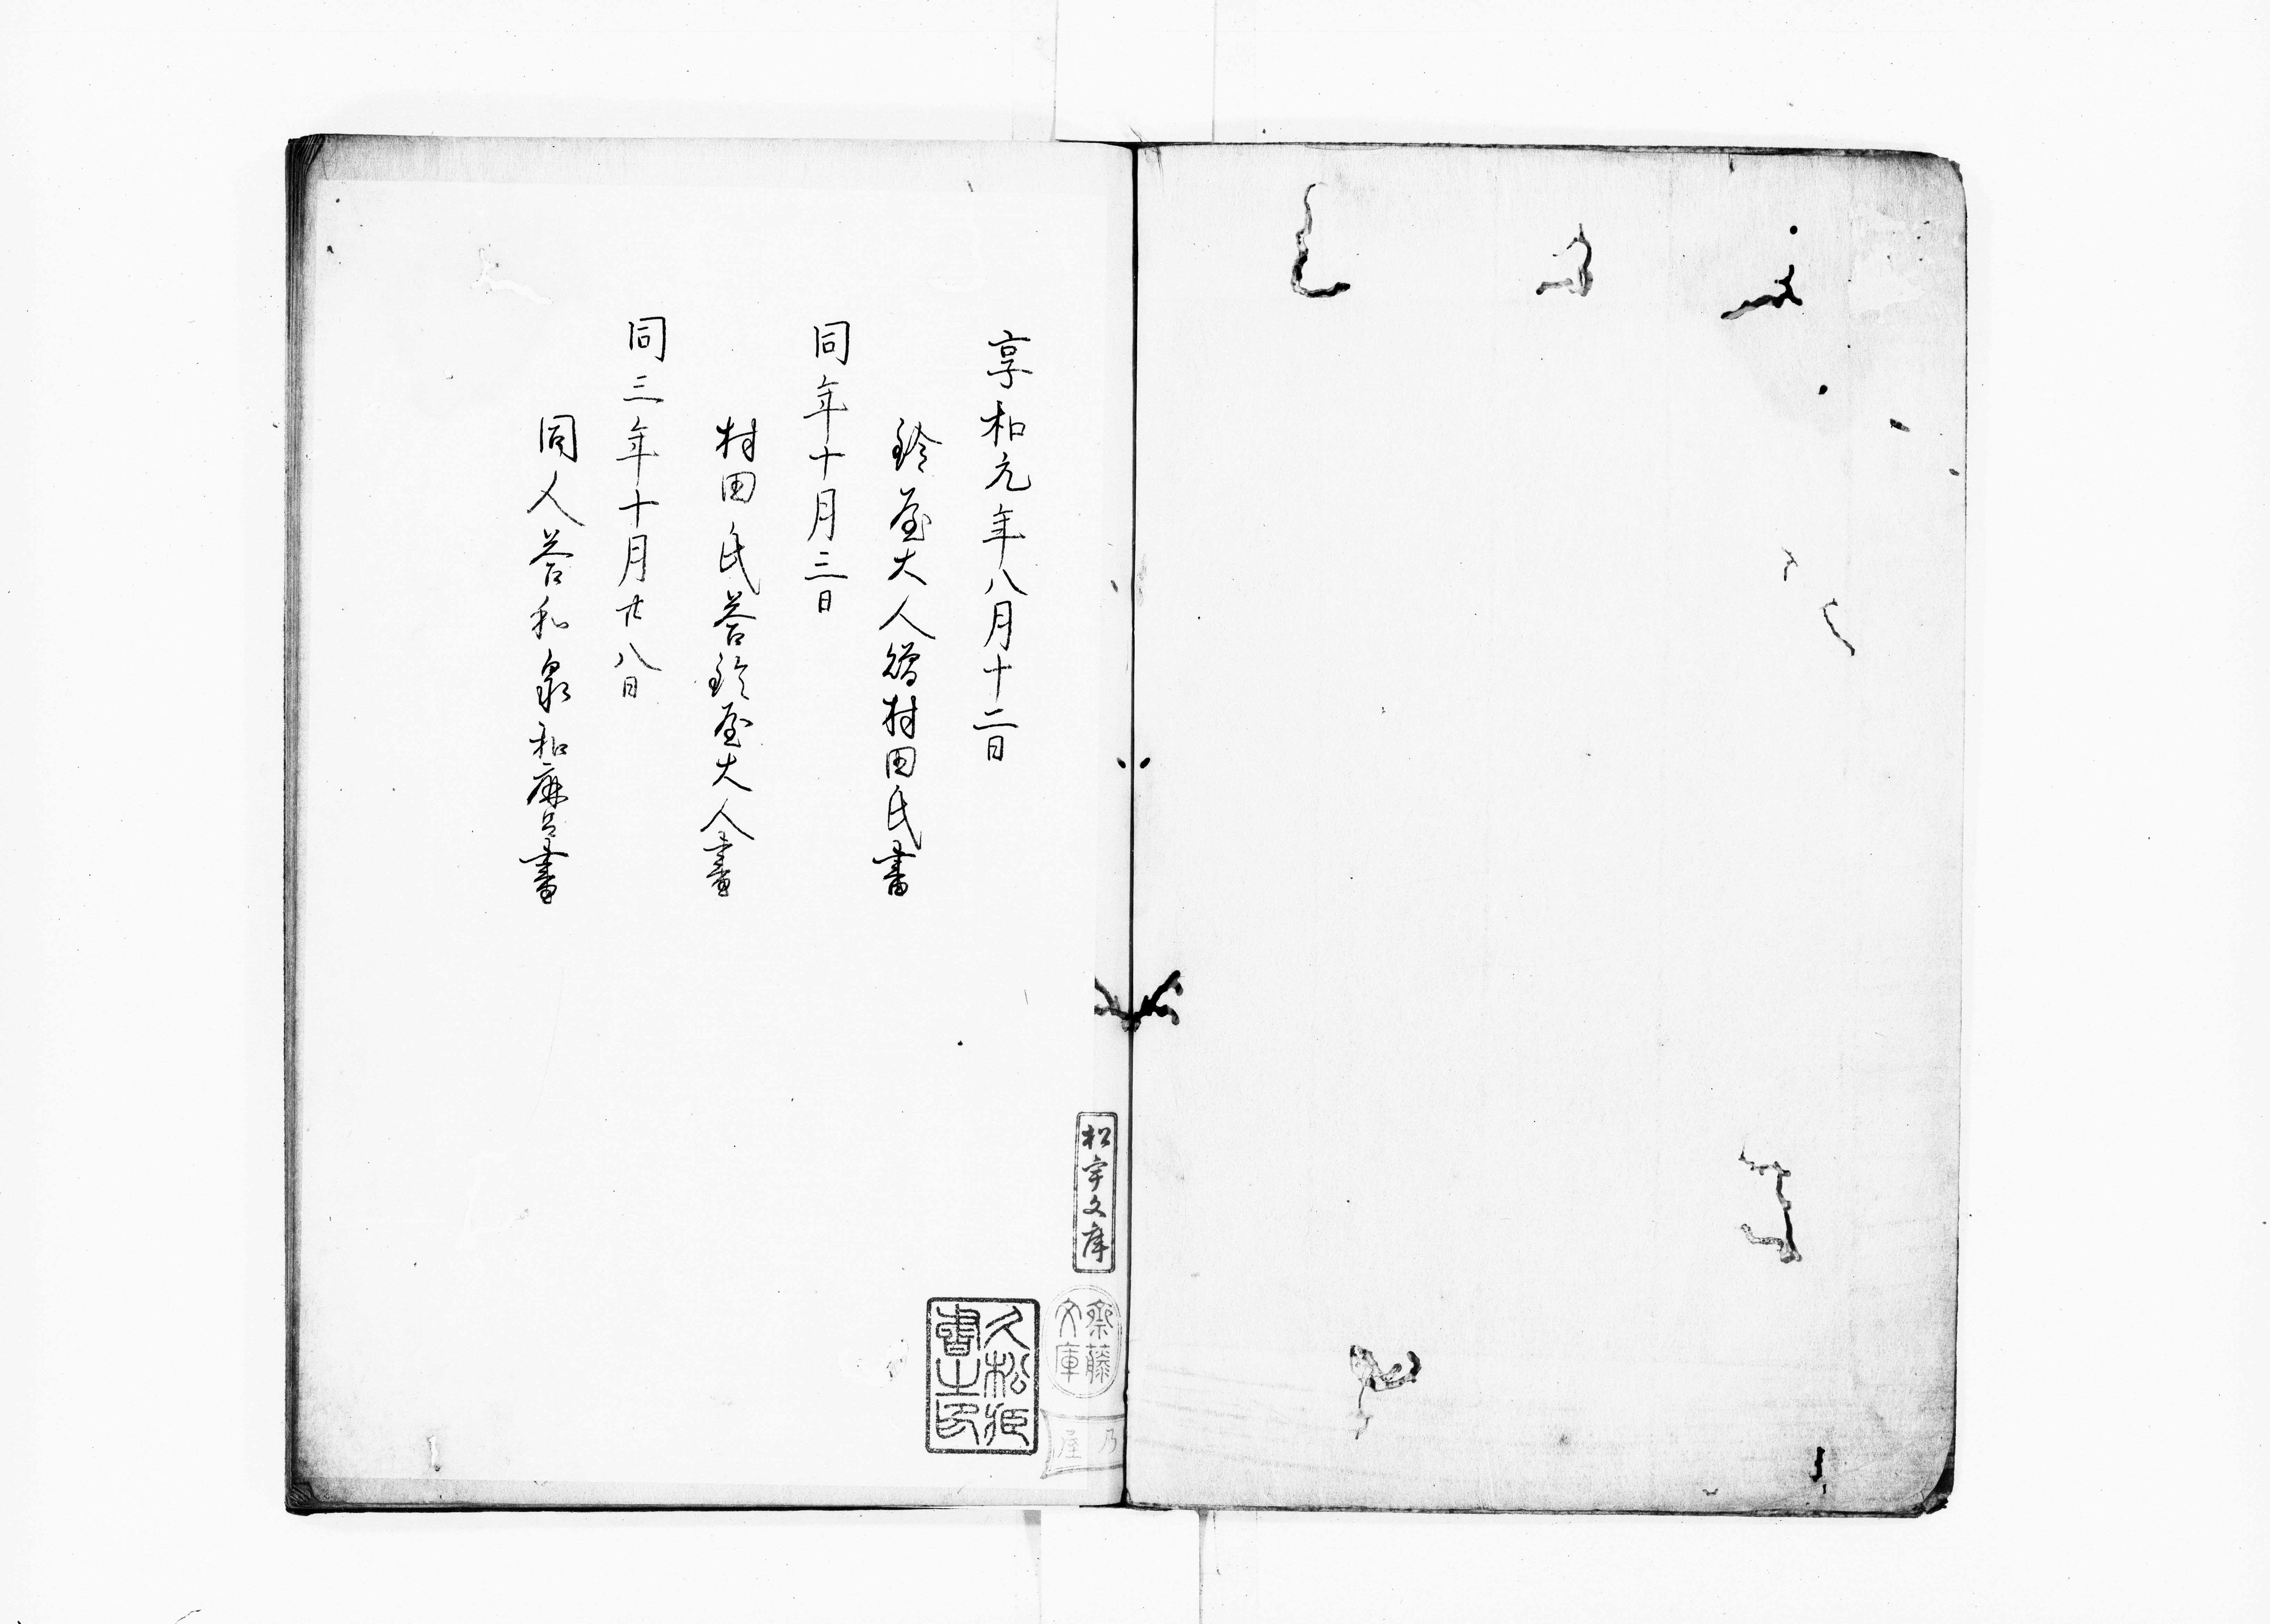 享和元年八月十二日
鈴屋大人贈村田氏書
同年十月三日
村田氏答鈴屋大人書
同三年十月廿八日
同人答和泉和麻呂書
松宇文庫
齋藤
文庫
乃
屋
久松
書之印